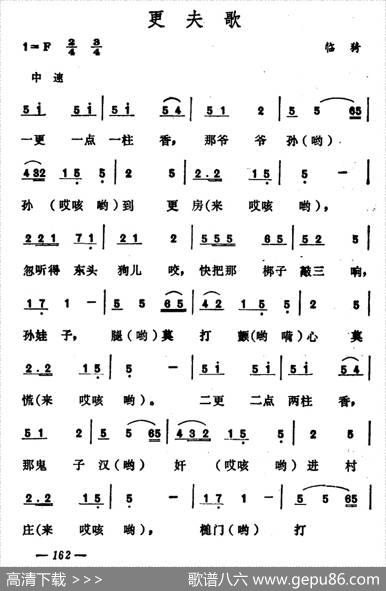 更夫歌
1=F 2/4 3/4 临猗
中速
5 i 5 i | 5 i i | 5 4 | 5 1 2 | 5 5 65 |
一更 一点 一柱 香, 那爷 爷 孙(哟)
432 15 5 | 2 5 | 2·2 15 | 5 — |
孙 (哎咳 哟)到 更 房(来 哎咳 哟),
221 71 | 21 2 | 555 65 | 52 5 |
忽听得 东头 狗儿 咬, 快把那 梆子 敲三 响,
17 1 — | 5 5 65 | 42 15 5 |
孙娃 子, 腿(哟)莫 打 颤(哟 嗬)心 莫
2·2 15 | 5 — | 5i 5i | 5i i 54 |
慌(来 哎咳 哟)。 二更 二点 两柱 香,
51 2 | 5 5 65 | 432 15 5 | 2 5 |
那鬼 子 汉(哟) 奸 (哎咳 哟)进 村
2·2 15 | 5 — | 17 1 — | 5 5 65 |
庄(来 哎咳 哟), 槌门(哟) 打
— 162 —
高清下载 >>> 歌谱八六 www.gepu86.com